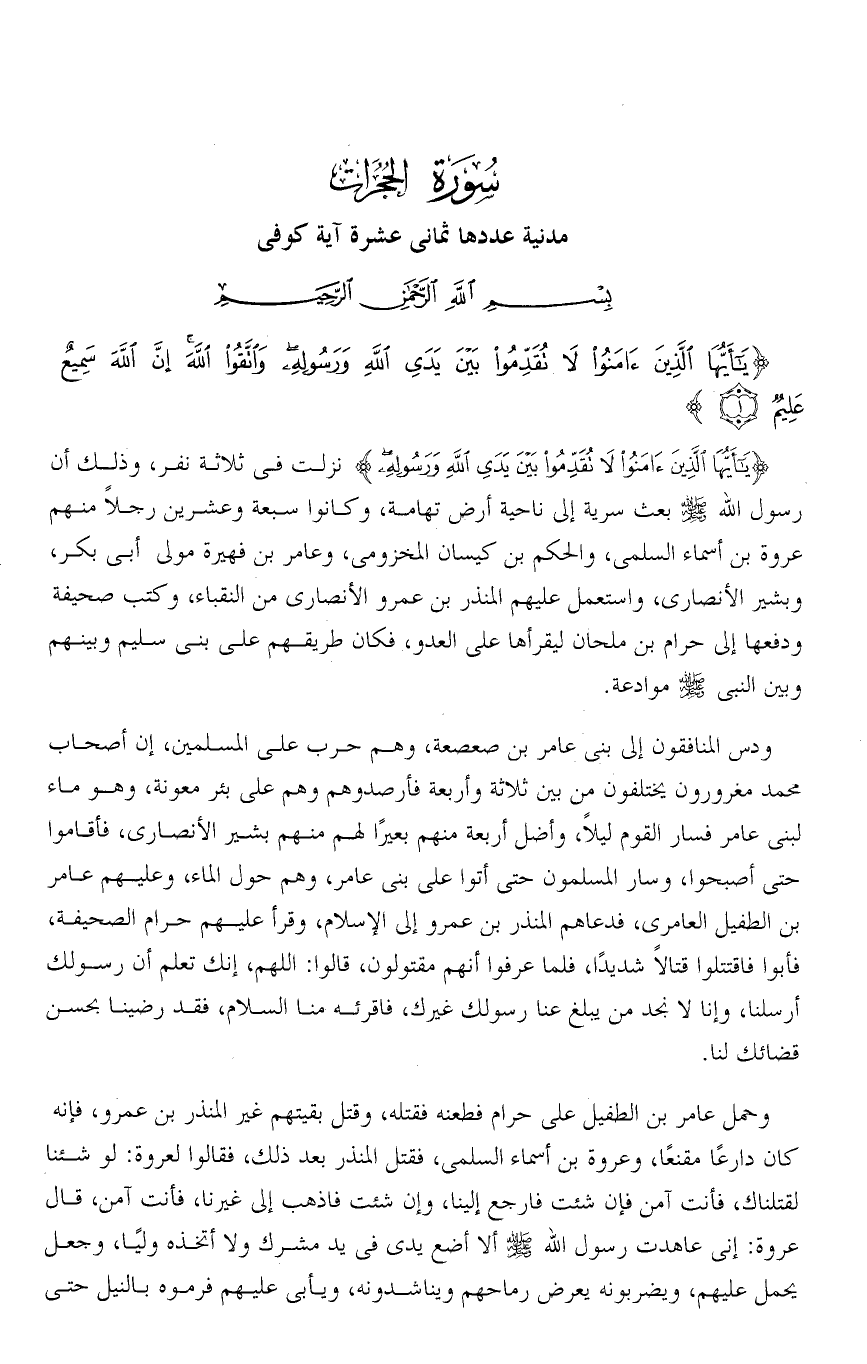 سُورَةُ الحُجُرَاتِ
مدنية عددها ثمانى عشرة آية كوفى
بِسْمِ ٱللَّهِ ٱلرَّحْمَٰنِ ٱلرَّحِيمِ
﴿يَٰٓأَيُّهَا ٱلَّذِينَ ءَامَنُوا۟ لَا تُقَدِّمُوا۟ بَيْنَ يَدَىِ ٱللَّهِ وَرَسُولِهِۦ ۖ وَٱتَّقُوا۟ ٱللَّهَ ۚ إِنَّ ٱللَّهَ سَمِيعٌ
عَلِيمٌ ١ ﴾
﴿يَٰٓأَيُّهَا ٱلَّذِينَ ءَامَنُوا۟ لَا تُقَدِّمُوا۟ بَيْنَ يَدَىِ ٱللَّهِ وَرَسُولِهِۦ ۖ﴾ نزلت فى ثلاثة نفر، وذلك أن
رسول الله ﷺ بعث سرية إلى ناحية أرض تهامة، وكانوا سبعة وعشرين رجلاً منهم
عروة بن أسماء السلمى، والحكم بن كيسان المخزومى، وعامر بن فهيرة مولى أبى بكر،
وبشير الأنصارى، واستعمل عليهم المنذر بن عمرو الأنصارى من النقباء، وكتب صحيفة
ودفعها إلى حرام بن ملحان ليقرأها على العدو، فكان طريقهم على بنى سليم وبينهم
وبين النبى ﷺ موادعة.
ودس المنافقون إلى بنى عامر بن صعصعة، وهم حرب على المسلمين، إن أصحاب
محمد مغرورون يختلفون من بين ثلاثة وأربعة فأرصدوهم وهم على بئر معونة، وهو ماء
لبنى عامر فسار القوم ليلاً، وأضل أربعة منهم بعيرًا لهم منهم بشير الأنصارى، فأقاموا
حتى أصبحوا، وسار المسلمون حتى أتوا على بنى عامر، وهم حول الماء، وعليهم عامر
بن الطفيل العامرى، فدعاهم المنذر بن عمرو إلى الإسلام، وقرأ عليهم حرام الصحيفة،
فأبوا فاقتتلوا قتالاً شديدًا، فلما عرفوا أنهم مقتولون، قالوا: اللهم، إنك تعلم أن رسولك
أرسلنا، وإنا لا نجد من يبلغ عنا رسولك غيرك، فاقرئه منا السلام، فقد رضينا بحسن
قضائك لنا.
وحمل عامر بن الطفيل على حرام فطعنه فقتله، وقتل بقيتهم غير المنذر بن عمرو، فإنه
كان دارعًا مقنعًا، وعروة بن أسماء السلمى، فقتل المنذر بعد ذلك، فقالوا لعروة: لو شئنا
لقتلناك، فأنت آمن فإن شئت فارجع إلينا، وإن شئت فاذهب إلى غيرنا، فأنت آمن، قال
عروة: إنى عاهدت رسول الله ﷺ ألا أضع يدى فى يد مشرك ولا أتخذه وليًا، وجعل
يحمل عليهم، ويضربونه يعرض رماحهم ويناشدونه، ويأبى عليهم فرموه بالنيل حتى